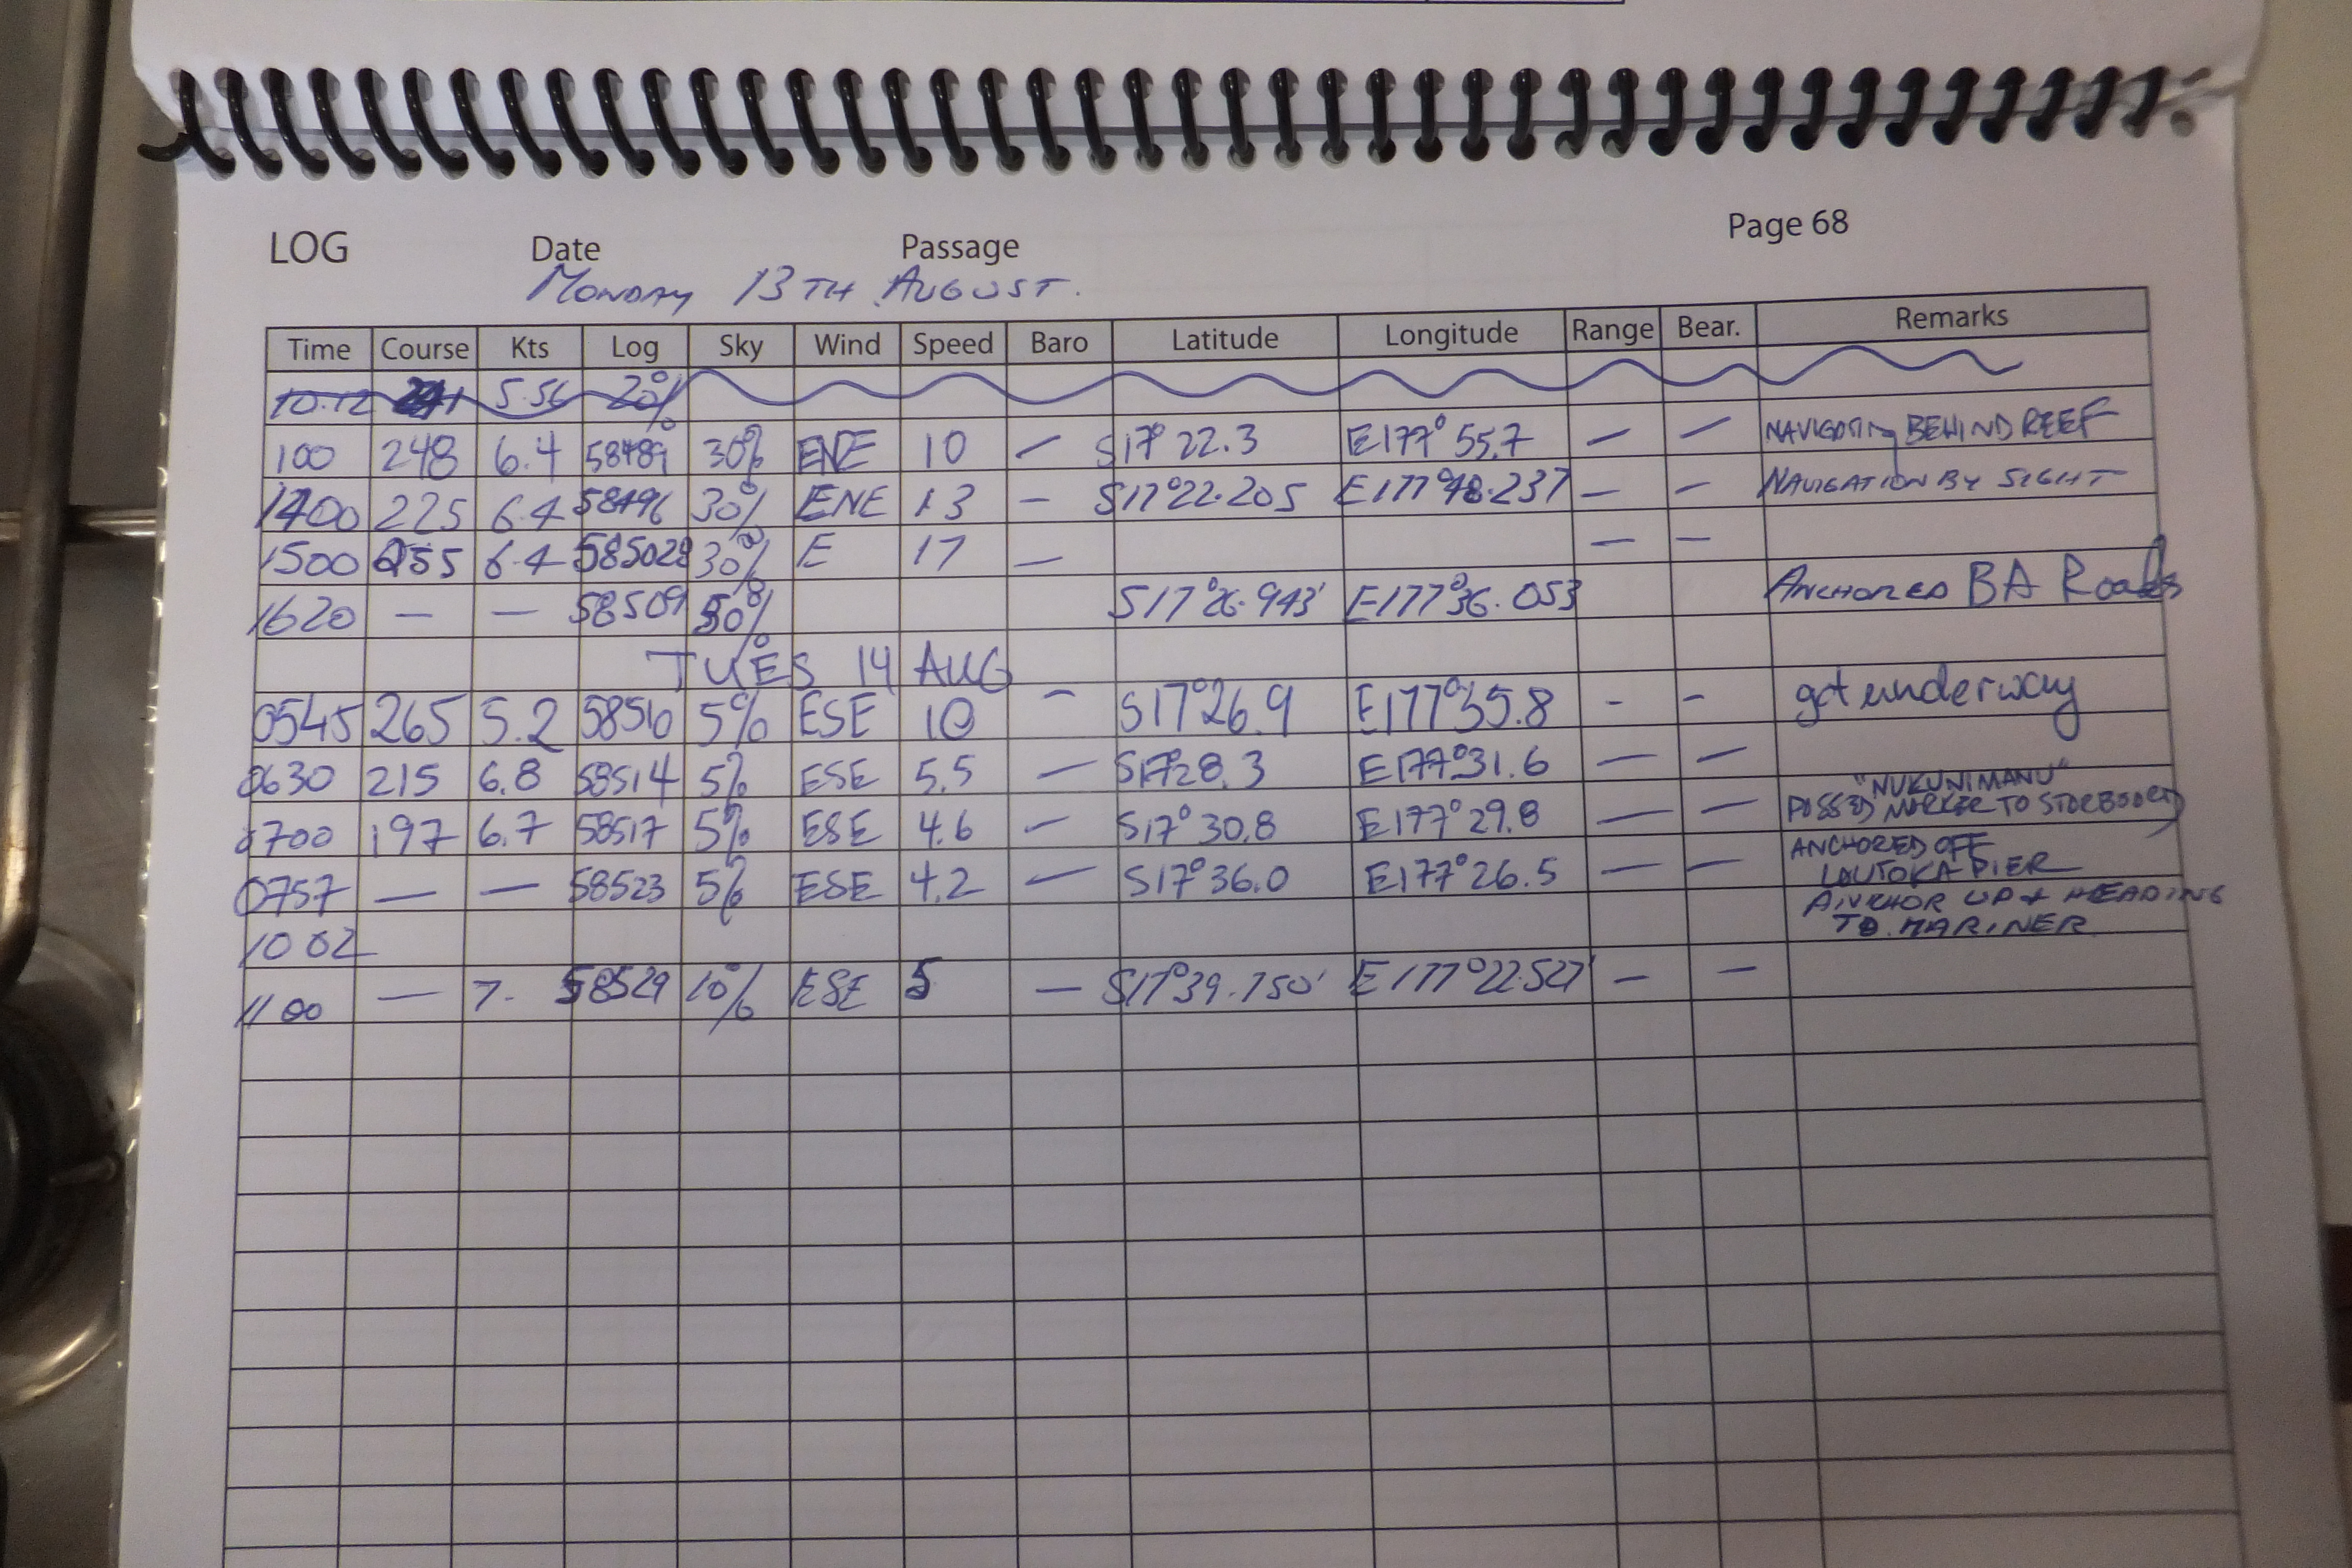 LOG Date Passage Page 68
MONDAY 13TH AUGUST.
Time Course Kts Log Sky Wind Speed Baro Latitude Longitude Range Bear. Remarks
10.12 5.56 20%
100 248 6.4 58489 30% ENE 10 — S17° 22.3 E177° 55.7 — — NAVIGATING BEHIND REEF
1400 225 6.4 58496 30% ENE 13 — S17°22.205 E177°48.237 — — NAVIGATION BY SIGHT
1500 255 6.4 58502 30% E 17 — — —
1620 — — 58509 50% S17°26.943' E177°36.053 ANCHORED BA Roads
TUES 14 AUG
0545 265 5.2 58510 5% ESE 10 - S17°26.9 E177°35.8 - - got underway
0630 215 6.8 58514 5% ESE 5.5 — S17°28.3 E177°31.6 — —
"NUKUNIMANU"
0700 197 6.7 58517 5% ESE 4.6 — S17° 30.8 E177° 29.8 — — PASSED MARKER TO STARBOARD
ANCHORED OFF
0757 — — 58523 5% ESE 4.2 — S17° 36.0 E177° 26.5 — — LAUTOKA PIER
ANCHOR UP & HEADING
1002 TO MARINER
1100 — 7. 58529 10% ESE 5 — S17°39.750' E177°22.527' — —